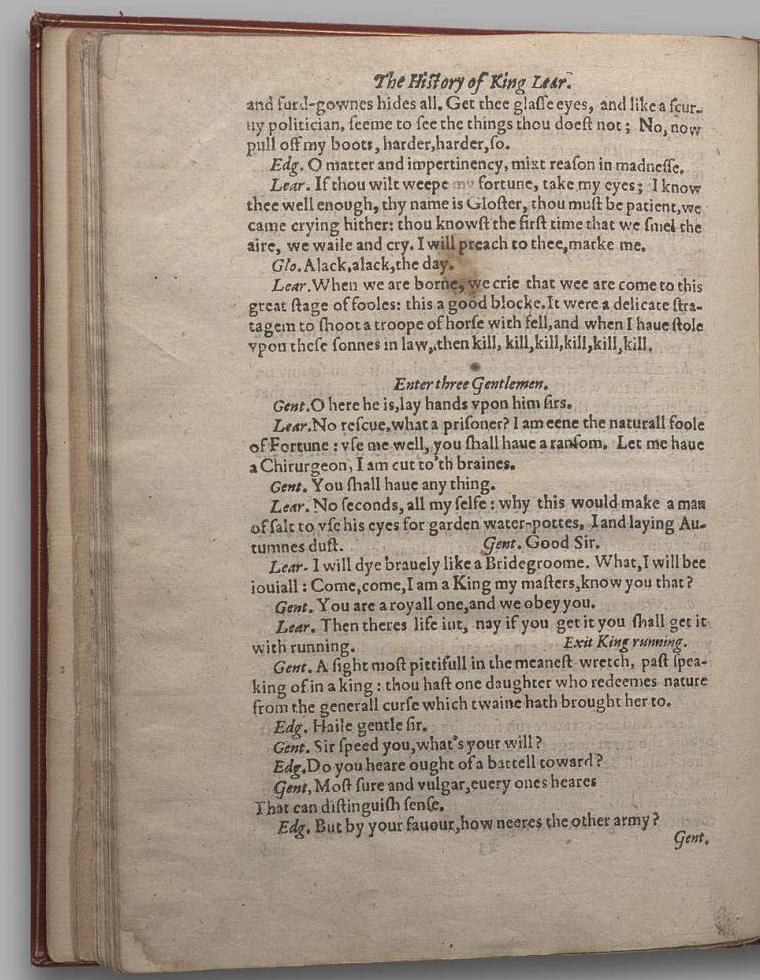 The Hiſtory of King Lear.
and furd-gownes hides all. Get thee glaſſe eyes, and like a ſcur-
uy politician, ſeeme to ſee the things thou doeſt not; No, now
pull off my boots, harder,harder,ſo.
Edg. O matter and impertinency, mixt reaſon in madneſſe.
Lear. If thou wilt weepe my fortune, take my eyes; I know
thee well enough, thy name is Gloſter, thou muſt be patient,we
came crying hither: thou knowſt the firſt time that we ſmel the
aire, we waile and cry. I will preach to thee,marke me.
Glo. Alack,alack,the day.
Lear. When we are borne, we crie that wee are come to this
great ſtage of fooles: this a good blocke. It were a delicate ſtra-
tagem to ſhoot a troope of horſe with fell,and when I haue ſtole
vpon theſe ſonnes in law,,then kill, kill,kill,kill,kill,kill.
Enter three Gentlemen.
Gent. O here he is,lay hands vpon him ſirs.
Lear. No reſcue,what a priſoner? I am eene the naturall foole
of Fortune : vſe me well, you ſhall haue a ranſom. Let me haue
a Chirurgeon, I am cut to'th braines.
Gent. You ſhall haue any thing.
Lear. No ſeconds, all my ſelfe : why this would make a man
of ſalt to vſe his eyes for garden water-pottes, I and laying Au-
tumnes duſt. Gent. Good Sir.
Lear. I will dye brauely like a Bridegroome. What,I will bee
iouiall : Come,come,I am a King my maſters,know you that ?
Gent. You are a royall one,and we obey you.
Lear. Then theres life int, nay if you get it you ſhall get it
with running. Exit King running.
Gent. A ſight moſt pittifull in the meaneſt wretch, paſt ſpea-
king of in a king : thou haſt one daughter who redeemes nature
from the generall curſe which twaine hath brought her to.
Edg. Haile gentle ſir.
Gent. Sir ſpeed you,what's your will ?
Edg. Do you heare ought of a battell toward ?
Gent, Moſt ſure and vulgar,euery ones heares
That can diſtinguiſh ſenſe.
Edg. But by your fauour,how neeres the other army ?
Gent.